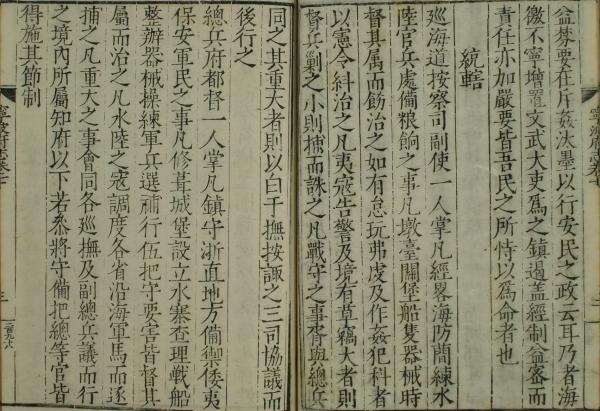 益勞要在斥姦汰墨以行安民之政云耳乃者海
徼不寧增置文武大吏爲之鎮遏盖經制益密而
責任亦加嚴要皆吾民之所恃以爲命者也
統轄
廵海道按察司副使一人掌凡經畧海防蕳練水
陸官兵處備粮餉之事凡墩臺關堡船隻器械時
督其属而飭治之如有怠玩弗虔及作姦犯科者
以憲令糾治之凡夷寇告警及境有草竊大者則
督兵剿之小則捕而誅之凡戰守之事胥與總兵
同之其重大者則以白于撫按諏之三司協議而
後行之
總兵府都督一人掌凡鎮守浙直地方備禦倭夷
保安軍民之事凡修葺城堡設立水寨查理戰船
整辦器械操練軍兵選補行伍把守要害皆督其
屬而治之凡水陸之寇調度各省沿海軍馬而逐
捕之凡重大之事會同各廵撫及副總兵議而行
之境内所屬知府以下若叅將守備把總等官皆
得施其節制